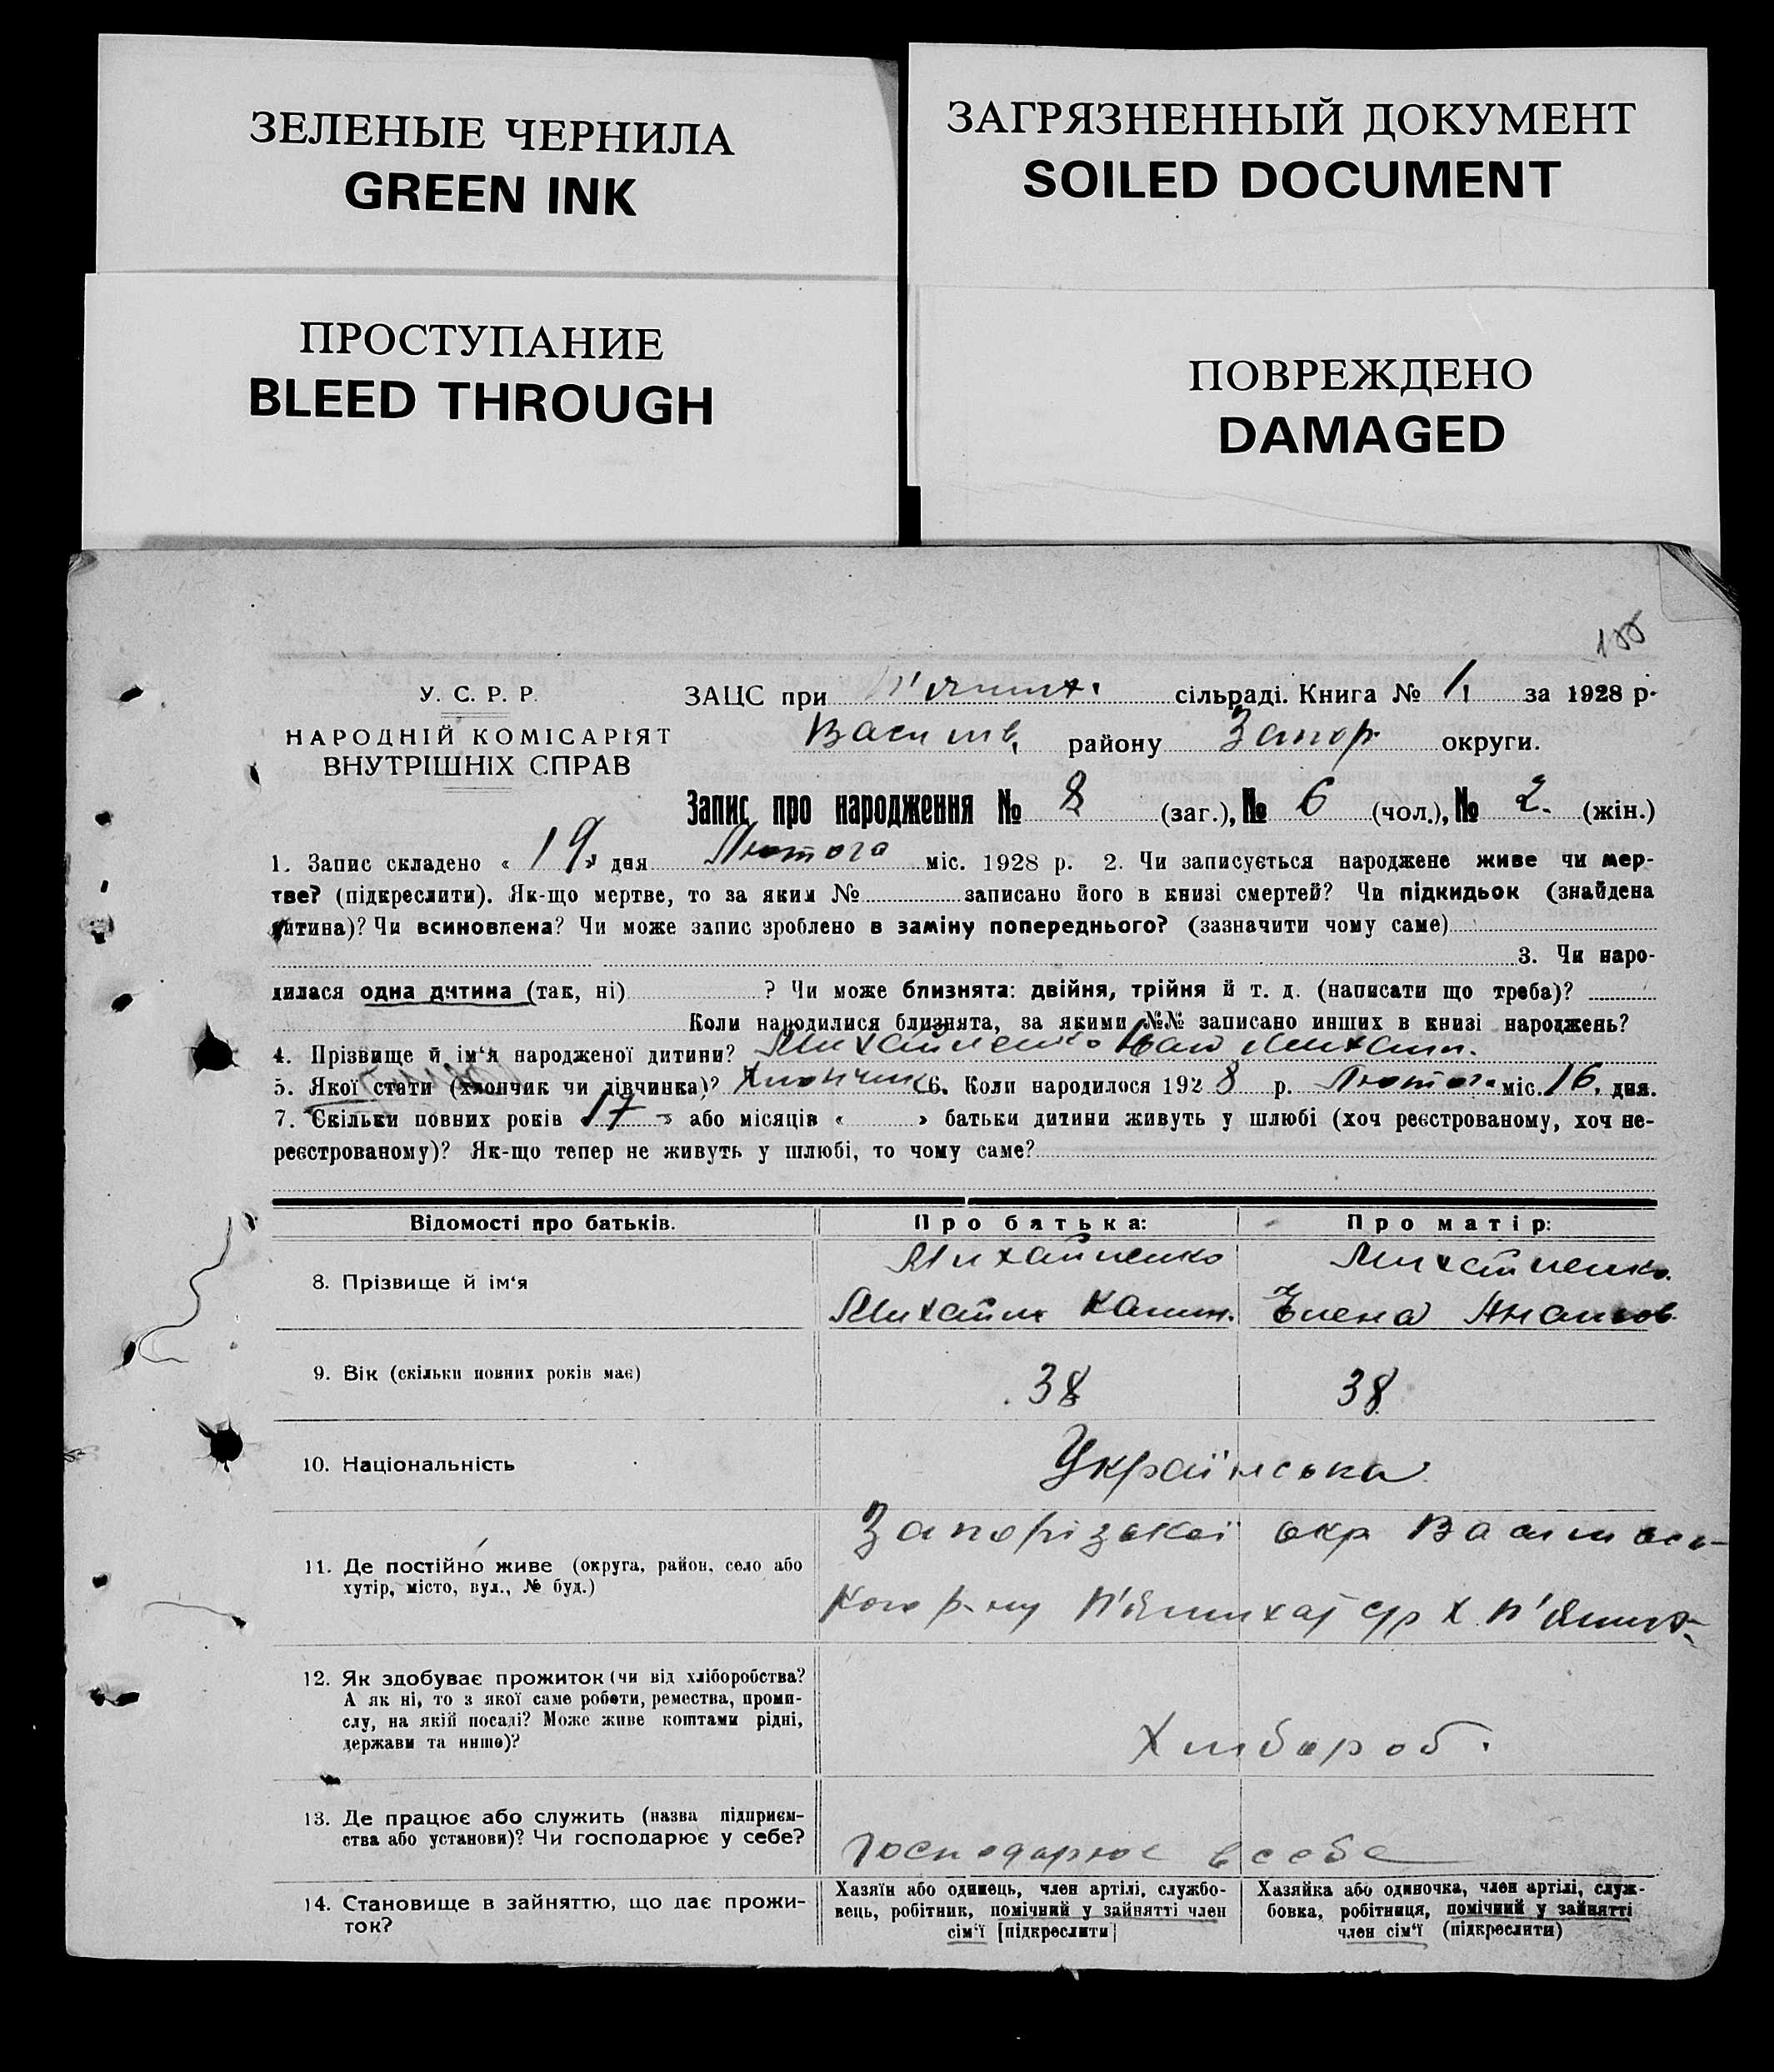 ЗЕЛЕНЫЕ ЧЕРНИЛА
GREEN INK
ЗАГРЯЗНЕННЫЙ ДОКУМЕНТ
SOILED DOCUMENT
ПРОСТУПАНИЕ
BLEED THROUGH
ПОВРЕЖДЕНО
DAMAGED
У. С. Р. Р.
НАРОДНІЙ КОМІСАРІЯТ
ВНУТРІШНІХ СПРАВ
ЗАЦС при П'ятихат. сільраді. Книга № 1, за 1928 р.
Василів. району Запор. округи.
Запис про народження № 8 (заг.), № 6 (чол.), № 2. (жін.)
1. Запис складено « 19 » дня Лютого міс. 1928 р. 2. Чи записується народжене живе чи мер-
тве? (підкреслити). Як-що мертве, то за яким № записано його в книзі смертей? Чи підкидьок (знайдена
дитина)? Чи всиновлена? Чи може запис зроблено в заміну попереднього? (зазначити чому саме)
3. Чи наро-
дилася одна дитина (так, ні) ? Чи може близнята: двійня, трійня й т. д. (написати що треба)?
Коли народилися близнята, за якими №№ записано инших в книзі народжень?
4. Прізвище й ім'я народженої дитини? Михайленко Іван Михайл.
5. Якої стати (хлопчик чи дівчинка)? Хлопчик 6. Коли народилося 1928 р. Лютого міс. 16, дня.
7. Скільки повних років « 17 » або місяців « » батьки дитини живуть у шлюбі (хоч реєстрованому, хоч не-
реєстрованому)? Як-що тепер не живуть у шлюбі, то чому саме?
Відомості про батьків. Про батька: Про матір:
8. Прізвище й ім'я
Михайленко Михайленко
Михайло Елена
9. Вік (скільки повних років має) 38 38
10. Національність Українська
11. Де постійно живе (округа, район, село або
хутір, місто, вул., № буд.)
Запорізької окр Васильовсь-
кого р-ну П'ятихат с/р х. П'ятихат
12. Як здобуває прожиток (чи від хліборобства?
А як ні, то з якої саме роботи, ремества, проми-
слу, на якій посаді? Може живе коштами рідні,
держави та инше)?
Хлібороб.
13. Де працює або служить (назва підприєм-
ства або установи)? Чи господарює у себе?
Господарює в себе
14. Становище в зайняттю, що дає прожи-
ток?
Хазяїн або одинець, член артілі, службо-
вець, робітник, помічний у зайнятті член
сім'ї [підкреслити]
Хазяйка або одиночка, член артілі, служ-
бовка, робітниця, помічний у зайнятті
член сім'ї (підкреслити)